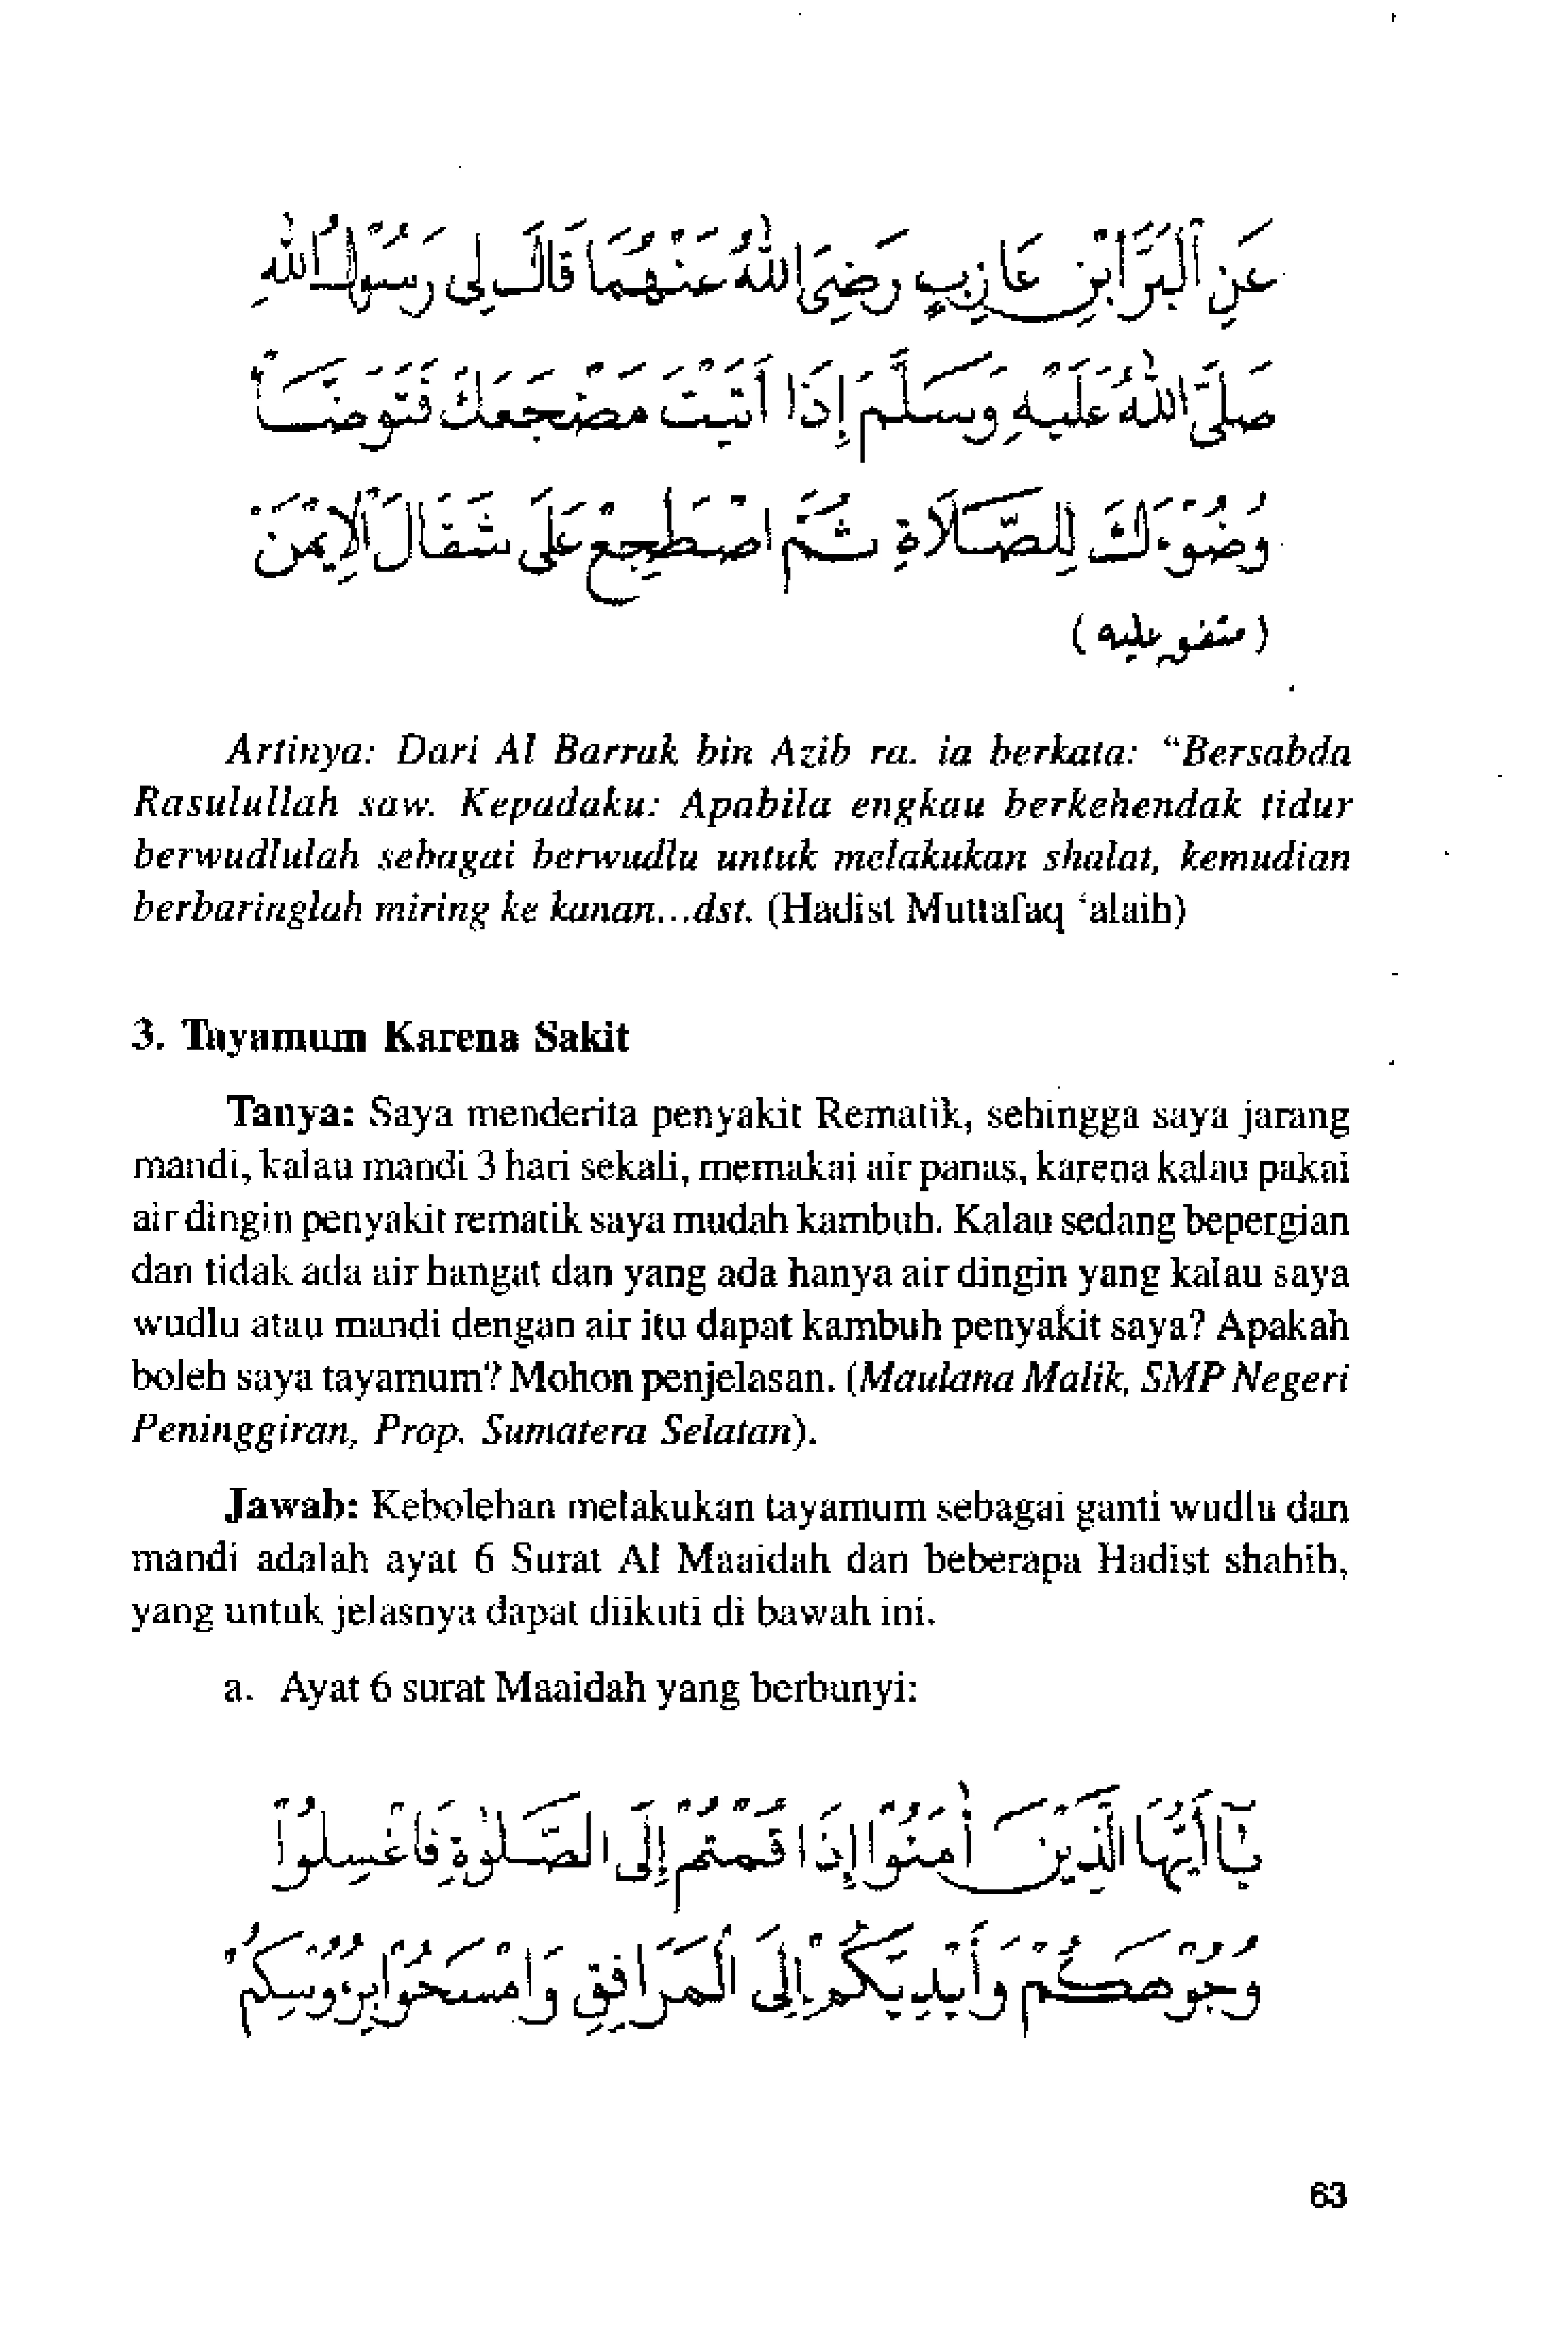 عَنِ الْبَرَّابْنِ عَازِبٍ رَضِيَ اللهُ عَنْهُمَا قَالَ لِى رَسُوْلُ اللهِ
صَلَّى اللهُ عَلَيْهِ وَسَلَّمَ إِذَا أَتَيْتَ مَضْجَعَكَ فَتَوَضَّأْ
وُضُوْءَكَ لِلصَّلَاةِ ثُمَّ اضْطَجِعْ عَلَى شَقَالَ الْاِيْمَنْ
(متفق عليه)
Artinya: Dari Al Barrak bin Azib ra. ia berkata: “Bersabda
Rasulullah saw. Kepadaku: Apabila engkau berkehendak tidur
berwudlulah sebagai berwudlu untuk melakukan shalat, kemudian
berbaringlah miring ke kanan...dst. (Hadist Muttafaq ‘alaih)
3. Tayamum Karena Sakit
Tanya: Saya menderita penyakit Rematik, sehingga saya jarang
mandi, kalau mandi 3 hari sekali, memakai air panas, karena kalau pakai
air dingin penyakit rematik saya mudah kambuh. Kalau sedang bepergian
dan tidak ada air hangat dan yang ada hanya air dingin yang kalau saya
wudlu atau mandi dengan air itu dapat kambuh penyakit saya? Apakah
boleh saya tayamum? Mohon penjelasan. (Maulana Malik, SMP Negeri
Peninggiran, Prop. Sumatera Selatan).
Jawab: Kebolehan melakukan tayamum sebagai ganti wudlu dan
mandi adalah ayat 6 Surat Al Maaidah dan beberapa Hadist shahih,
yang untuk jelasnya dapat diikuti di bawah ini.
a. Ayat 6 surat Maaidah yang berbunyi:
يَٰٓأَيُّهَا الَّذِيْنَ اٰمَنُوْٓا إِذَا قُمْتُمْ إِلَى الصَّلٰوةِ فَاغْسِلُوْا
وُجُوْهَكُمْ وَأَيْدِيَكُمْ إِلَى الْمَرَافِقِ وَامْسَحُوْا بِرُءُوْسِكُمْ
63